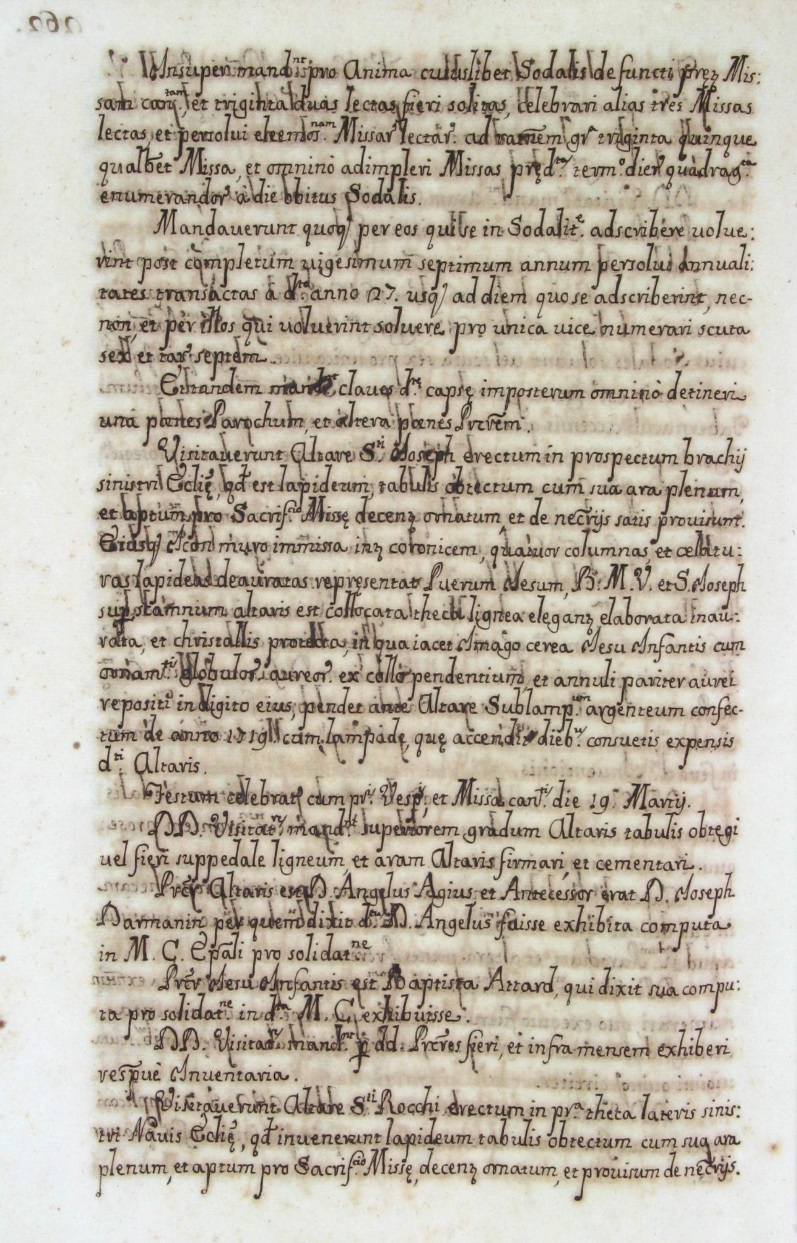 262.
Insuper mand.nt pro Anima cuiuslibet Sodalis defuncti pręz Mis:
sam can.tam, et triginta duas lectas fieri solitas, celebrari alias tres Missas
lectas, et persolui elemos.nam Missar. lectar. ad gr. triginta quinque
qualbet Missa, et omnino adimpleri Missas pręd.tas term.o dier. quadrag.ta
enumerandor. a die obitus Sodalis.
Mandauerunt quoq; per eos qui se in Sodalit.e adscribere uolue:
rint post completum uigesimum septimum annum persolui Annuali:
tates transactas à d.to anno 27. usq; ad diem quo se adscriberint, nec-
non, et per illos qui uoluerint soluere pro unica uice numerari scuta
sex et tar. septem.
Eitandem claues d.tę capsę imposterum omnino detineri
una penes Parochum, et altera penes Prrẽm.
Visitauerunt Altare S.ti Joseph erectum in prospectum brachij
sinistri Eclię, qd est lapideum tabulis obtectum cum sua ara plenum,
et aptum pro Sacrif.io Missę decenz ornatum, et de nec̃rijs satis prouisum.
Eiusq; Icon muro immissa inz coronicem, quatuor columnas et cælatu:
ras lapideas deauratas representat Puerum Jesum, B. M. V. et S. Joseph
sup. stamnium altaris est collocata theca lignea eleganz elaborata inau:
rata, et christallis protecta, in qua iacet Imago cerea Jesu Infantis cum
ornam.tis globulor. aureor. ex collo pendentium, et annuli pariter aurei
repositi in digito eius, pendet ante Altare Sublamp.um argenteum confec-
tum de anno 1719 cum lampade, quę accendit. dieb. consuetis expensis
d.ti Altaris.
Festum celebrat. cum pr. Vesp. et Missa can.ta die 19. Martij.
DD. Visitat. mand.nt superiorem gradum Altaris tabulis obtegi
uel fieri suppedale ligneum et aram Altaris firmari, et cementari.
Prr̃ Altaris est D. Angelus Agius, et Antecessor erat D. Joseph
Darmanin per quem dixit d. D. Angelus fuisse exhibita computa
in M. C. Epãli pro solidat.ne
Prr̃ Jesu Infantis est Baptista Attard, qui dixit sua compu:
ta pro solidat.ne in d.ta M. C. exhibuisse.
DD. Visitat. mand.nt p dd. Prr̃es fieri, et infra mensem exhiberi
respuè Inuentaria.
Visitauerunt Altare S.ti Rocchi erectum in pr.a theca lateris sinis:
tri Nauis Eclię, qd inuenerunt lapideum tabulis obtectum cum sua ara
plenum, et aptum pro Sacrif.io Missę, decenz ornatum, et prouisum de nec̃rijs.